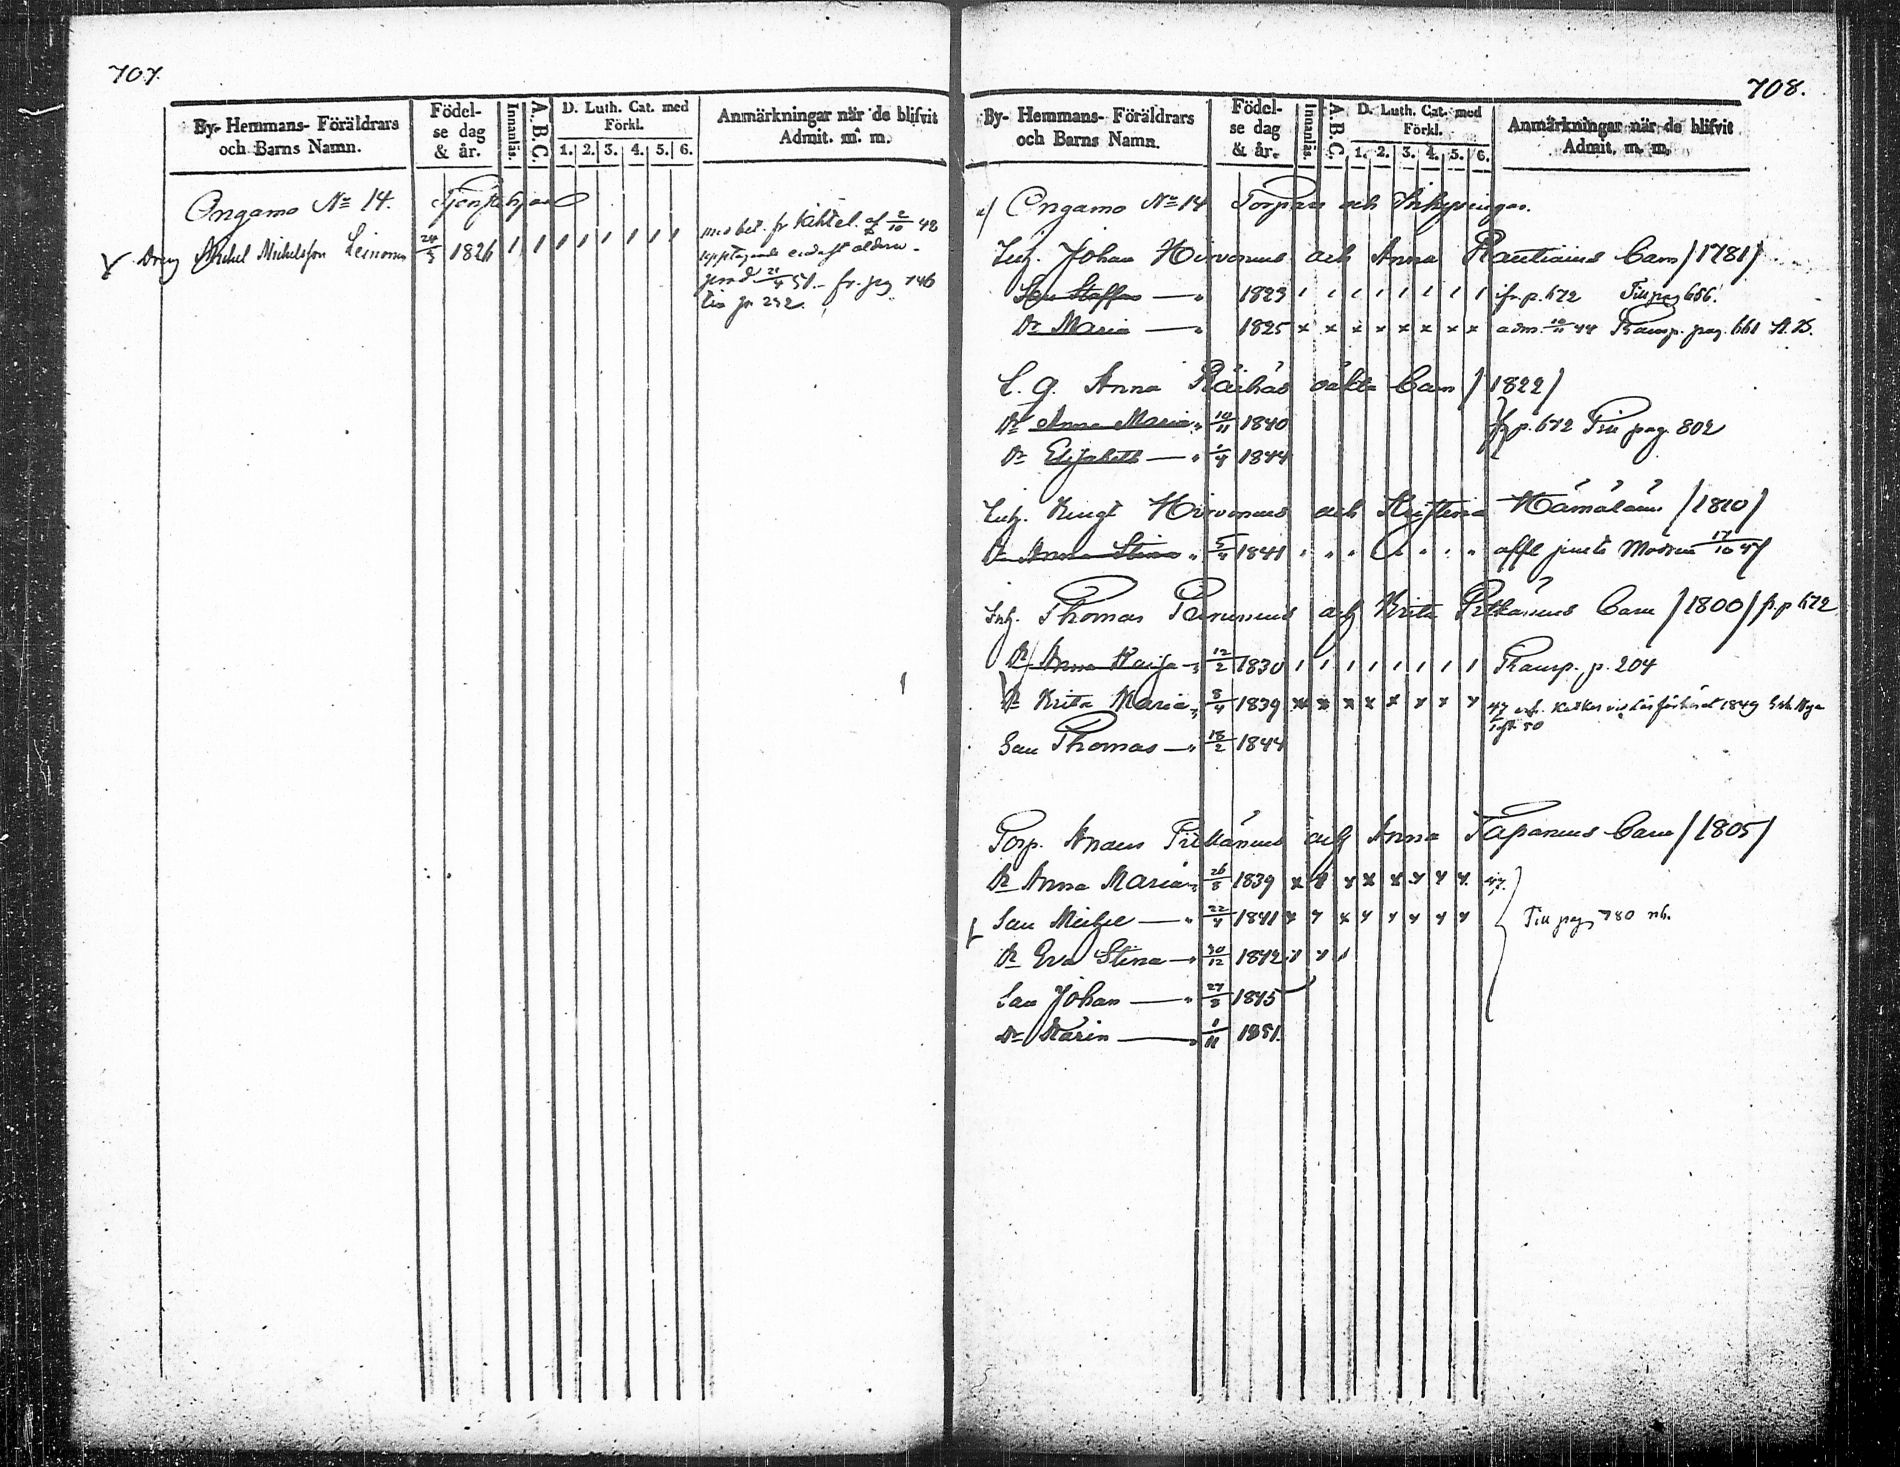 707.
By- Hemmans- Föräldrars och Barns Namn.
Födelse dag & år.
Innanläs.
A. B. C.
D. Luth. Cat. med Förkl.
1. 2. 3. 4. 5. 6.
Anmärkningar när de blifvit Admit. m. m.
Ongamo No 14. Tjenstehjon
Dreng Michel Michelsson Leinonen 24/5 1826
med bet. fr Kiktel. af 2/10 48
fr. pag 746
till p. 232.
708.
By- Hemmans- Föräldrars och Barns Namn.
Födelse dag & år.
Innanläs.
A. B. C.
D. Luth. Cat. med Förkl.
1. 2. 3. 4. 5. 6.
Anmärkningar när de blifvit Admit. m. m.
Ongamo No 14 Torpare och Inhysingar.
Inh. Johan Hirvonens och Anna Rautiains Barn /1781/
Son Staffan — " 1823 fr. p. 672 Till pag 666.
Dr Maria — " 1825 x x x x x x x x adm. 44 Transp. pag. 661
E. g. Anna Räihäs oäkta Barn /1822/
Dr Anna Maria " 10/11 1840 fr p. 672 Till pag. 802
Dr Elisabeth — " 1/4 1844
Inh. Bengt Hirvonens och Kristina Hämäläins /1810/
Dr Anna Stina " 5/4 1841 affl. Modren 17/10 47
Inh. Thomas Parnunens och Brita Pitkänens Barn /1800/ fr. p 672
Dr Anna Kaisa " 12/2 1830 Transp. p. 204
Dr Brita Maria " 8/4 1839 x x x x x x x x 47 läsförhöret 1849
50
Son Thomas — " 18/2 1844
Torp. Anders Pitkänens och Anna Tapanins Barn /1805/
Dr Anna Maria " 26/8 1839 x x x x x x x x 47.
Son Michel — " 22/4 1841 x x x x x x x x Till pag 780
Dr Eva Stina — " 30/12 1842
Son Johan — " 27/8 1845
Dr Karin — " 1/11 1851.